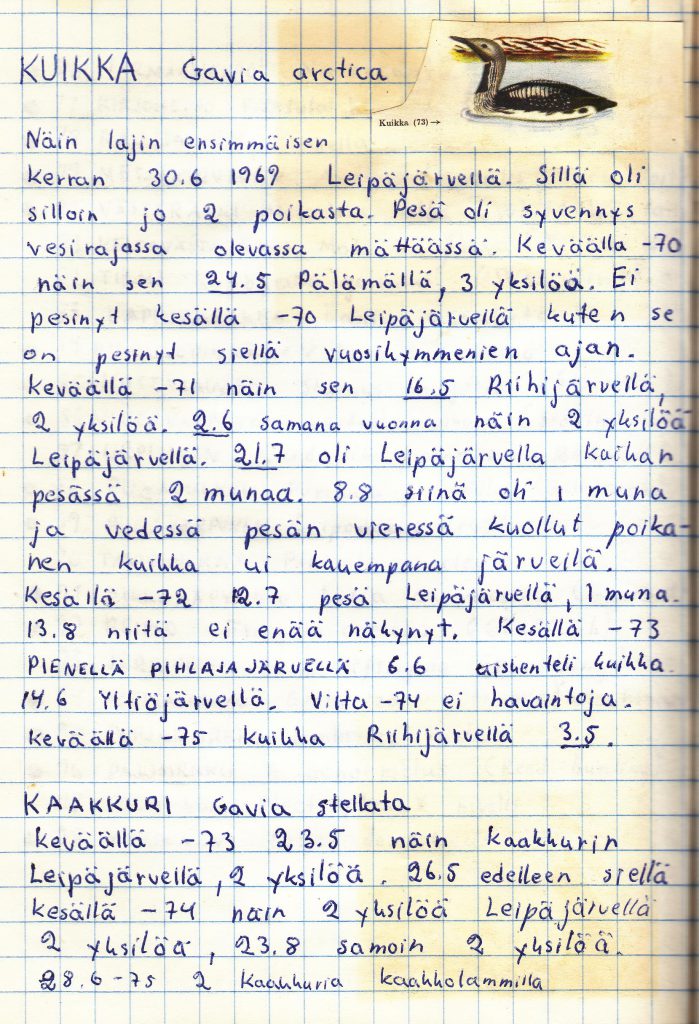 KUIKKA Gavia arctica
Kuikka (73) →
Näin lajin ensimmäisen
kerran 30.6 1969 Leipäjärvellä. Sillä oli
silloin jo 2 poikasta. Pesä oli syvennys
vesirajassa olevassa mättäässä. Keväällä -70
näin sen 24.5 Pälämällä, 3 yksilöä. Ei
pesinyt kesällä -70 Leipäjärvellä kuten se
on pesinyt siellä vuosikymmenien ajan.
Keväällä -71 näin sen 16.5 Riihijärvellä,
2 yksilöä. 2.6 samana vuonna näin 2 yksilöä
Leipäjärvellä. 21.7 oli Leipäjärvella kuikan
pesässä 2 munaa. 8.8 siinä oli 1 muna
ja vedessä pesän vieressä kuollut poika-
nen kuikka ui kauempana järvellä.
Kesällä -72 12.7 pesä Leipäjärvellä, 1 muna.
13.8 niitä ei enää näkynyt. Kesällä -73
PIENELLÄ PIHLAJAJÄRVELLÄ 6.6 uiskenteli kuikka.
14.6 Yltiöjärvellä. Vilta -74 ei havaintoja.
Keväällä -75 kuikka Riihijärvellä 3.5.
KAAKKURI Gavia stellata
Keväällä -73 23.5 näin kaakkurin
Leipäjärvellä, 2 yksilöä. 26.5 edelleen siellä
Kesällä -74 näin 2 yksilöä Leipäjärvellä
2 yksilöä, 23.8 samoin 2 yksilöä.
28.6-75 2 Kaakkuria kaakkolammilla